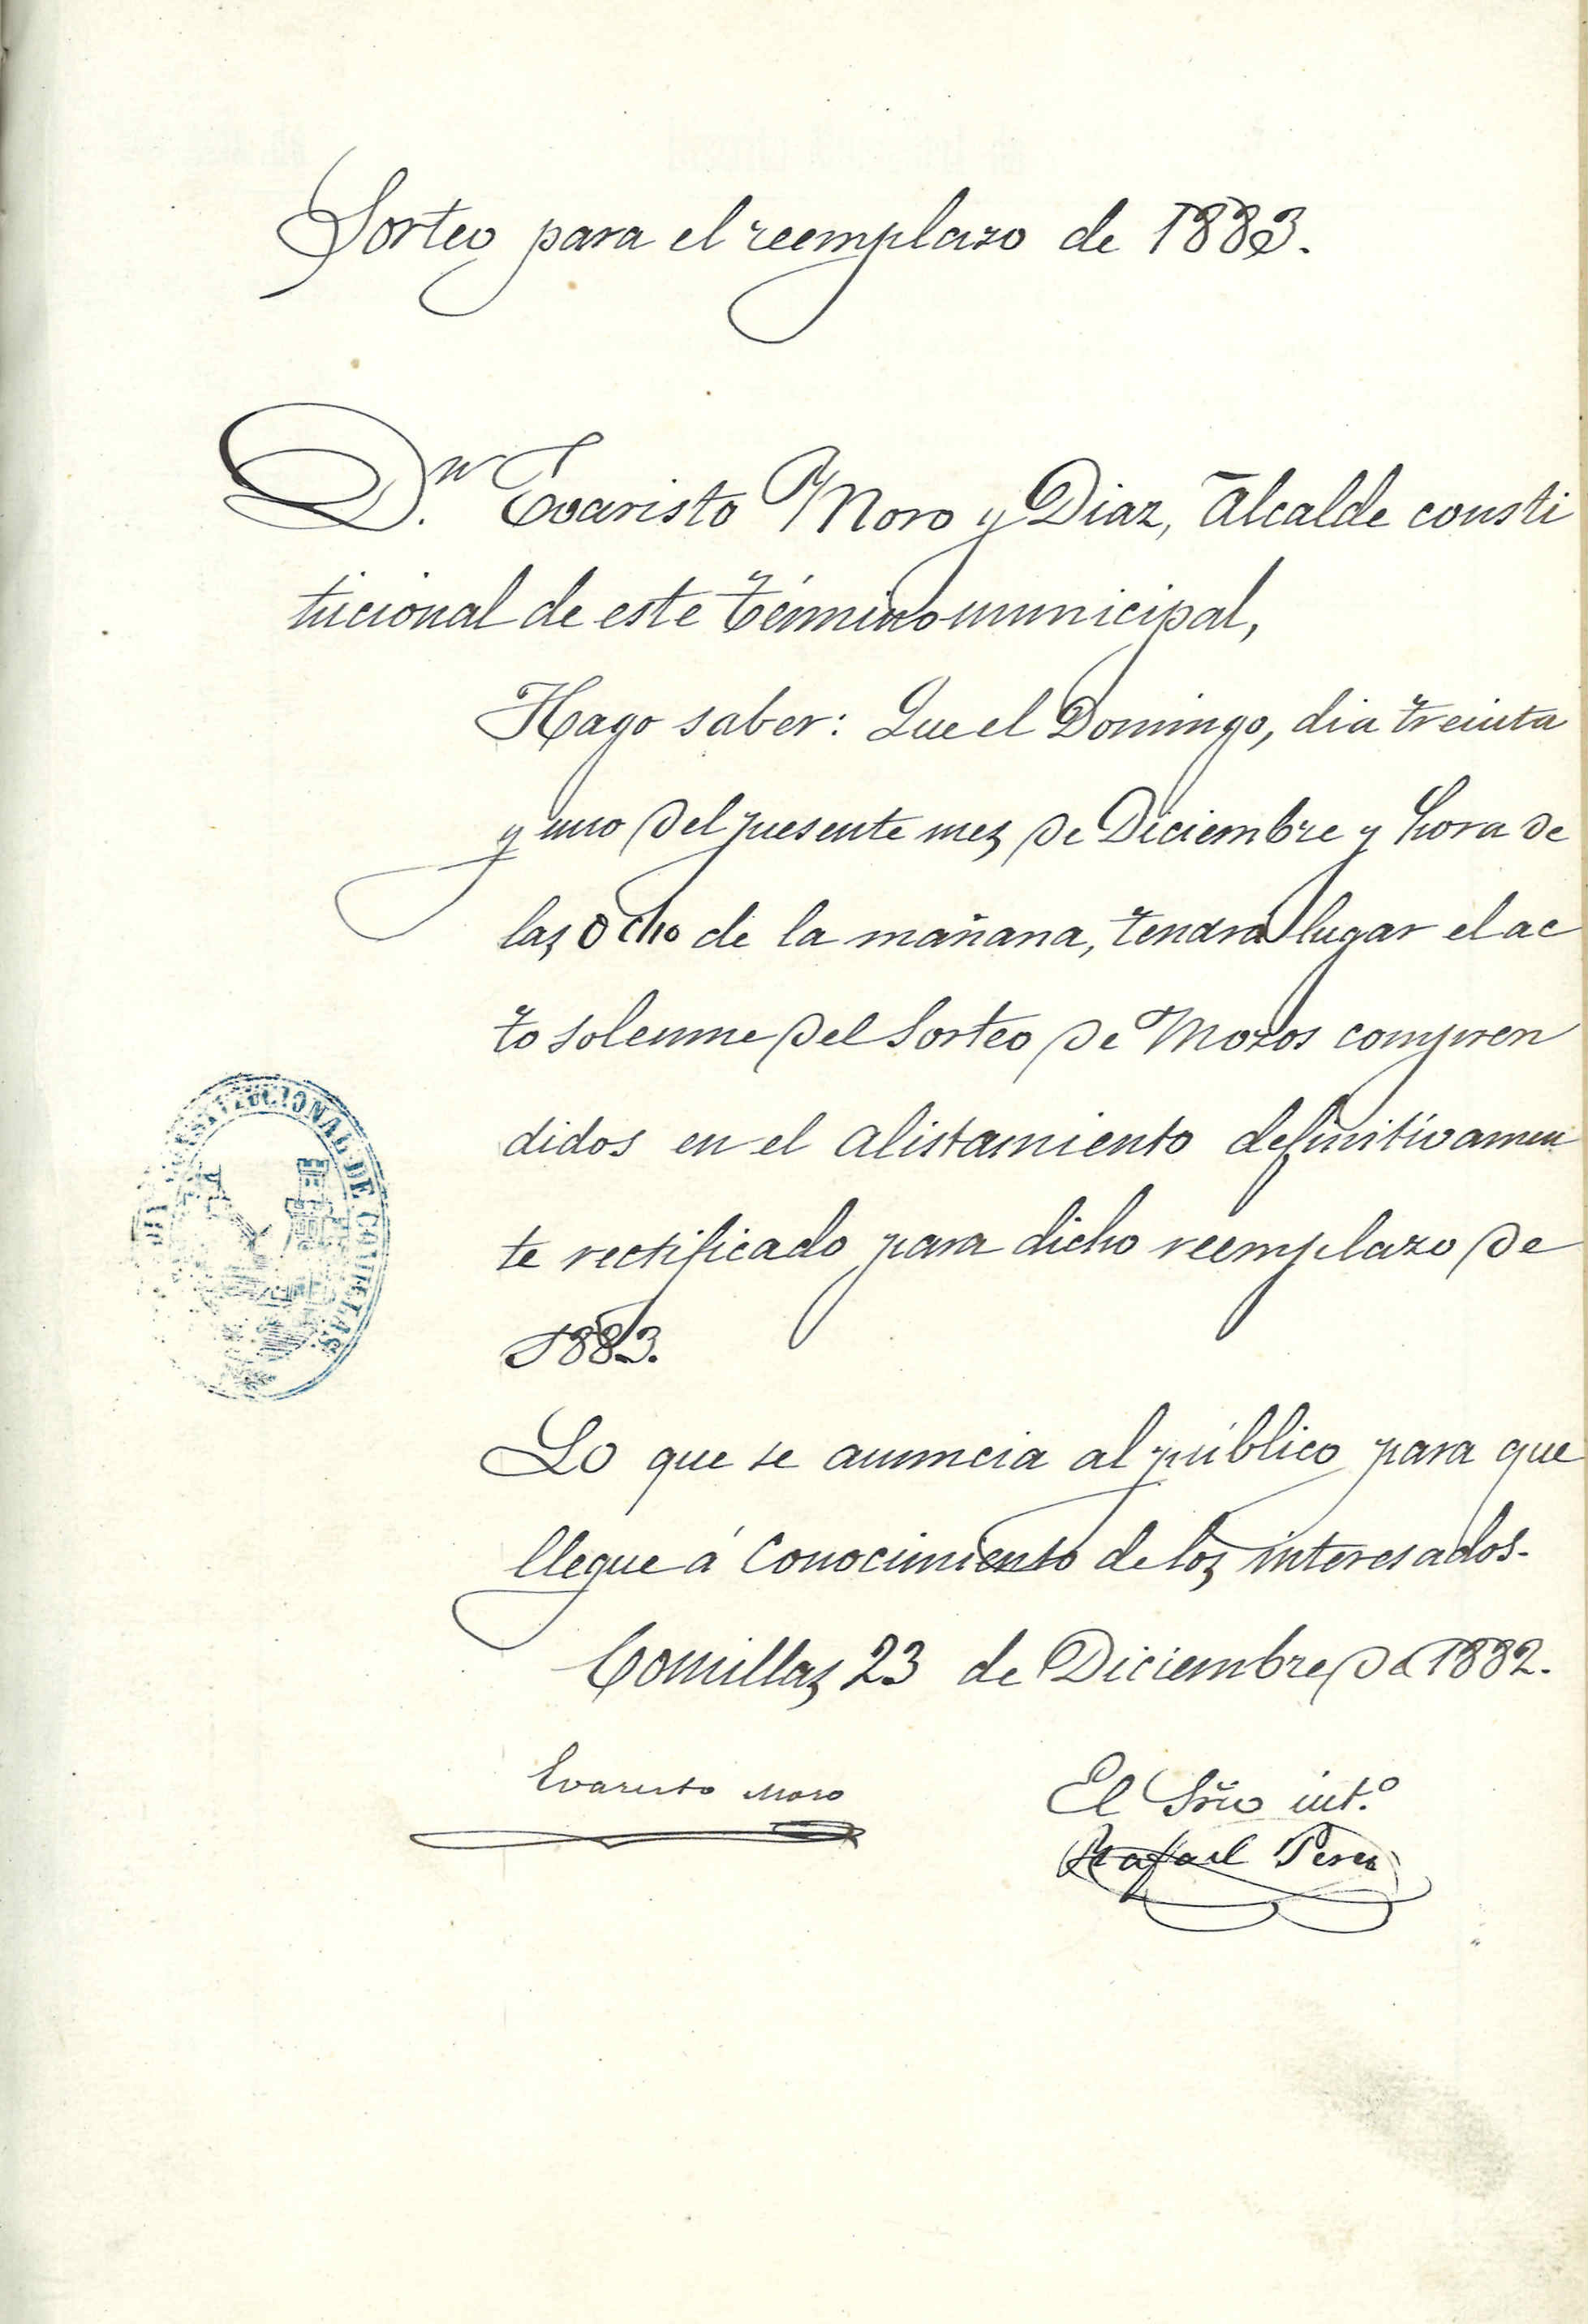 Sorteo para el reemplazo de 1883.
D.n Evaristo Moro y Diaz, Alcalde consti
tucional de este término municipal,
Hago saber: Que el Domingo, dia treinta
y uno del presente mes de Diciembre y hora de
las ocho de la mañana, tendrá lugar el ac
to solemne del Sorteo de Mozos compren
didos en el alistamiento definitivamen
te rectificado para dicho reemplazo de
1883.
Lo que se anuncia al público para que
llegue á conocimiento de los interesados.
Comillas 23 de Diciembre de 1882.
Evaristo Moro
El Srio int.º
Rafael Perez
CONSTITUCIONAL DE COMILLAS